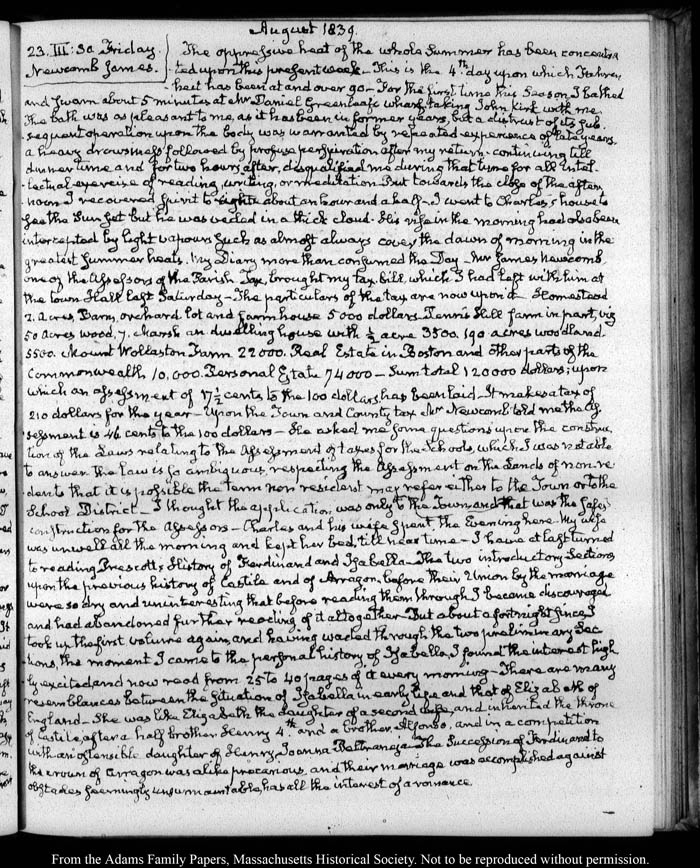 August 1839.
23. III:30 Friday. The oppressive heat of the whole Summer has been concentra
Newcomb James. ted upon this present week. This is the 4.th day upon which Fahren
heit has been at and over 90 – For the first time this Season I bathed
and swam about 5 minutes at Mr Daniel Greenleaf's wharf, taking John Kirk with me
The bath was as pleasant to me, as it has been in former years, but a distrust of its sub
sequent operation upon the body was warranted by repeated experience of late years,
a heavy drowsiness followed by profuse perspiration after my return – continuing till
dinner time and for two hours after, disqualified me during that time for all intel-
-lectual exercise of reading, writing, or meditation – But towards the close of the after
noon I recovered spirit to write about an hour and a half – I went to Charles's house to
see the Sun set but he was veiled in a thick cloud – His rise in the morning had also been
intercepted by light vapours such as almost always cover the dawn of morning in the
greatest Summer heats. My Diary more than consumed the Day – Mr James Newcomb,
one of the Assessors of the Parish Tax, brought my tax bill, which I had left with him at
the town Hall last Saturday – The particulars of the tax are now upon a Homestead
2. acres, Barn, orchard lot and Farm house 5000 dollars – Penn's Hill farm in part, viz
50 Acres wood, 7. Marsh an dwelling house with ½ acre 3500. 190 acres woodland.
5500. Mount Wollaston Farm 22000. Real Estate in Boston and other parts of the
Commonwealth 10,000. Personal Estate 74000 – Sum total 120000 dollars; upon
which an assessment of 17½ cents to the 100 dollars, has been laid – It makes a tax of
210 dollars for the year – Upon the Town and County tax Mr Newcomb told me the As
sessment is 46 cents to the 100 dollars – He asked me some questions upon the construc
tion of the Laws relating to the Assessment of taxes for the Schools, which I was not able
to answer. The law is so ambiguous, respecting the Assessment on the Lands of non-re
-dents that it is possible the term non resident may refer either to the Town or to the
School District – I thought the application was only to the Town, and that was the safest
construction for the Assessors – Charles and his wife spent the Evening here. My wife
was unwell all the morning and kept her bed, till near time – I have at last turned
to reading Prescott's History of Ferdinand and Isabella – The two introductory Sections
upon the previous history of Castile and of Arragon, before their Union by the marriage
were so dry and uninteresting that before reading them through I became discouraged
and had abandoned further reading of it altogether – But about a fortnight since I
took up the first volume again, and having waded through the two preliminary Sec
tions, the moment I came to the personal history, of Isabella, I found the interest high
ly excited, and now read from 25 to 40 pages of it every morning – There are many
resemblances between the situation of Isabella in early life and that of Elizabeth of
England – She was like Elizabeth the daughter of a second wife, and inherited the throne
of Castile, after a half brother Henry 4.th and a brother, Alfonso, and in a competition
with an ostensible daughter of Henry, Joanna Beltraneja – The Succession of Ferdinand to
the crown of Arragon was alike precarious, and their marriage was accomplished against
obstacles seemingly unsurmountable, has all the interest of a romance.
From the Adams Family Papers, Massachusetts Historical Society. Not to be reproduced without permission.